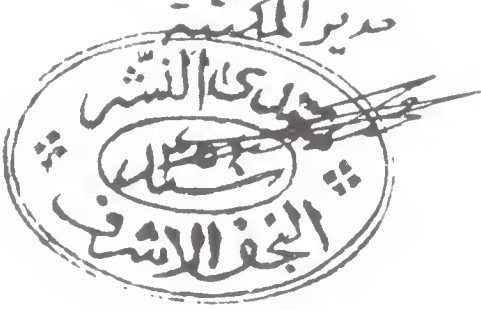 مدير المكتبة
منتدى النشر
النجف الاشرف